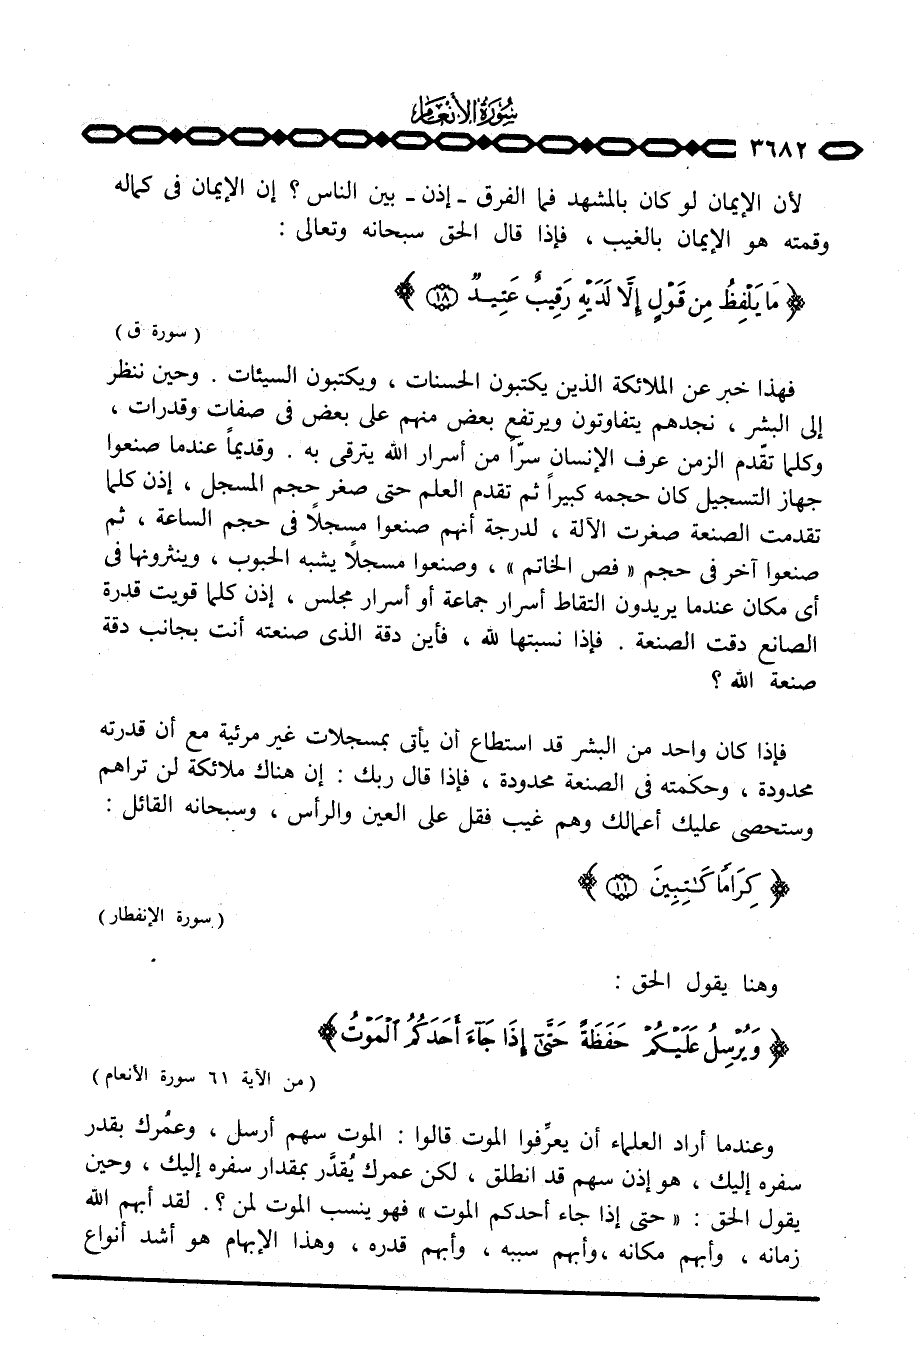 سُورَةُ الأَنْعَام
٣٦٨٢
لأن الإيمان لو كان بالمشهد فما الفرق ـ إذن ـ بين الناس ؟ إن الإيمان فى كماله
وقمته هو الإيمان بالغيب ، فإذا قال الحق سبحانه وتعالى :
﴿ مَا يَلْفِظُ مِن قَوْلٍ إِلَّا لَدَيْهِ رَقِيبٌ عَتِيدٌ ١٨ ﴾
( سورة ق )
فهذا خبر عن الملائكة الذين يكتبون الحسنات ، ويكتبون السيئات . وحين ننظر
إلى البشر ، نجدهم يتفاوتون ويرتفع بعض منهم على بعض فى صفات وقدرات ،
وكلما تقّدم الزمن عرف الإنسان سرّاً من أسرار الله يترقى به . وقديماً عندما صنعوا
جهاز التسجيل كان حجمه كبيراً ثم تقدم العلم حتى صغر حجم المسجل ، إذن كلما
تقدمت الصنعة صغرت الآلة ، لدرجة أنهم صنعوا مسجلاً فى حجم الساعة ، ثم
صنعوا آخر فى حجم « فص الخاتم » ، وصنعوا مسجلاً يشبه الحبوب ، وينثرونها فى
أى مكان عندما يريدون التقاط أسرار جماعة أو أسرار مجلس ، إذن كلما قويت قدرة
الصانع دقت الصنعة . فإذا نسبتها لله ، فأين دقة الذى صنعته أنت بجانب دقة
صنعة الله ؟
فإذا كان واحد من البشر قد استطاع أن يأتى بمسجلات غير مرئية مع أن قدرته
محدودة ، وحكمته فى الصنعة محدودة ، فإذا قال ربك : إن هناك ملائكة لن تراهم
وستحصى عليك أعمالك وهم غيب فقل على العين والرأس ، وسبحانه القائل :
﴿ كِرَامًا كَـٰتِبِينَ ١١ ﴾
( سورة الإنفطار )
وهنا يقول الحق :
﴿ وَيُرْسِلُ عَلَيْكُمْ حَفَظَةً حَتَّىٰٓ إِذَا جَآءَ أَحَدَكُمُ الْمَوْتُ ﴾
( من الآية ٦١ سورة الأنعام )
وعندما أراد العلماء أن يعرِّفوا الموت قالوا : الموت سهم أرسل ، وعمُرك بقدر
سفره إليك ، هو إذن سهم قد انطلق ، لكن عمرك يُقدَّر بمقدار سفره إليك ، وحين
يقول الحق : « حتى إذا جاء أحدكم الموت » فهو ينسب الموت لمن ؟. لقد أبهم الله
زمانه ، وأبهم مكانه ،وأبهم سببه ، وأبهم قدره ، وهذا الإبهام هو أشد أنواع